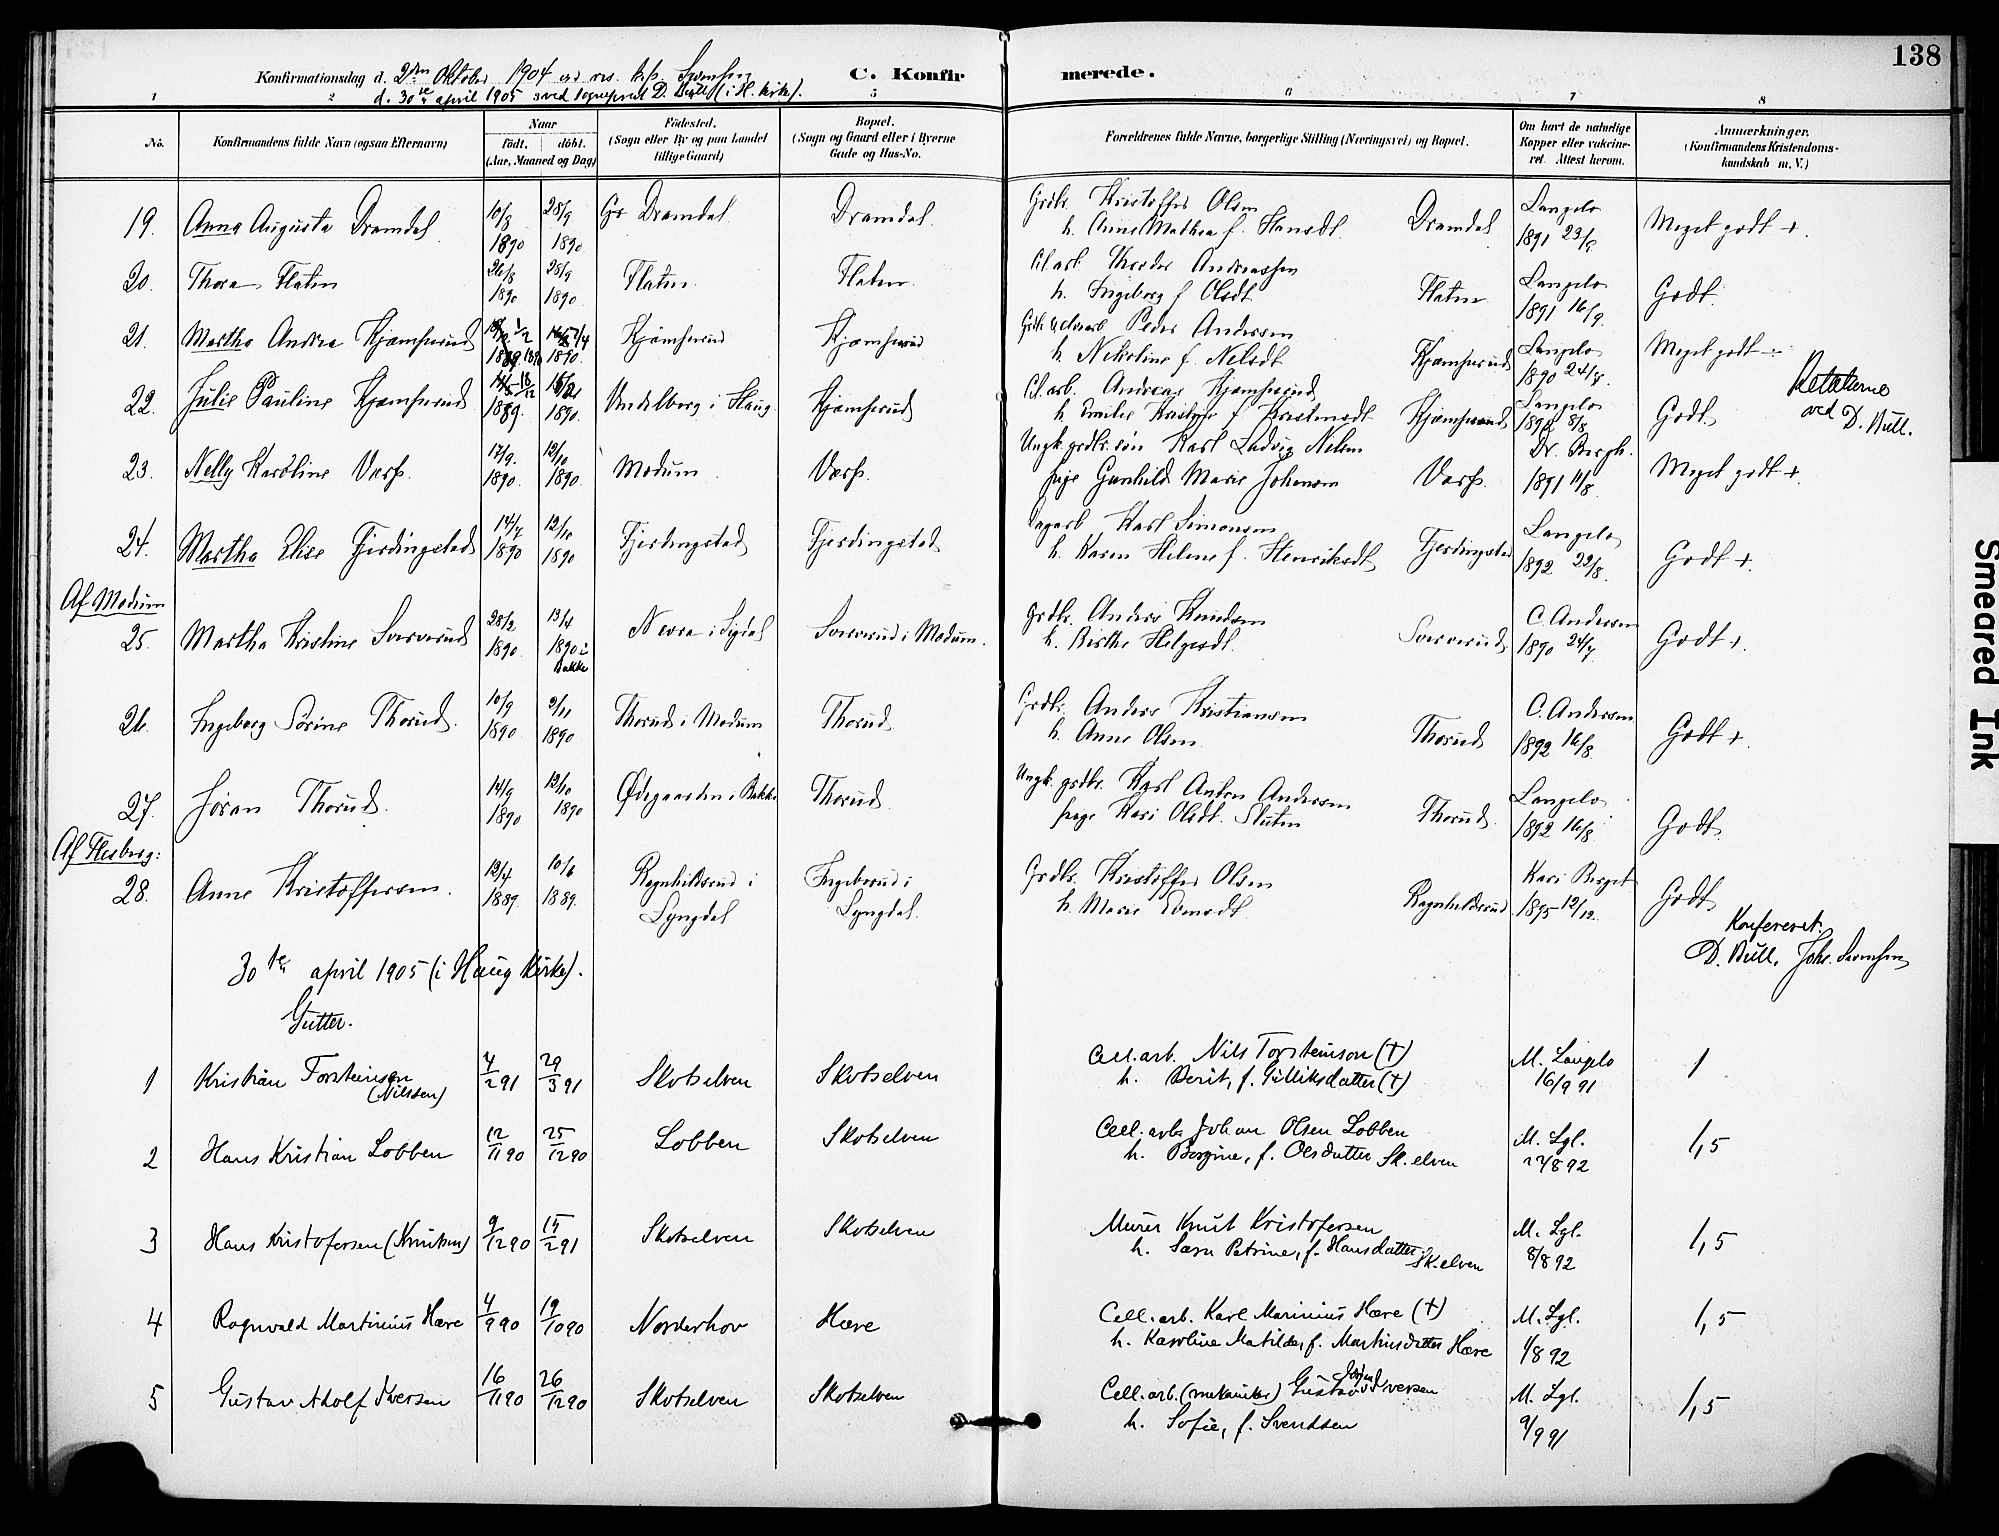 138
Konfirmationsdag d. 2den Oktober 1904 ved res. kap.
d. 30te april 1905 ved sogneprest D. Bull (i H. kirke).
C. Konfirmerede.
1 2 5 6 7 8
No. Konfirmandens fulde Navn (ogsaa Efternavn)
Naar
födt. döbt.
(Aar, Maaned og Dag)
Födested.
(Sogn eller By og paa Landet
tillige Gaard)
Bopæl.
(Sogn og Gaard eller i Byerne
Gade og Hus-No.
Forældrenes fulde Navne, borgerlige Stilling (Næringsvei) og Bopæl.
Om havt de naturlige
Kopper eller vakcine-
ret. Attest herom.
Anmærkninger.
(Konfirmandens Kristendoms-
kundskab m. V.)
19. Anna Augusta Dramdal 10/8 1890 28/9 1890 Gr Dramdal Dramdal
Grdbr. Kristoffer Olsen
h. Anne Mathea f. Hansdt. Dramdal Langelo 1891 23/9 Meget godt +.
20. Thora Flaten 26/8 1890 28/9 1890 Flaten Flaten
Cel. arb. Theodor Andreassen
h. Ingeborg f. Olsdt. Flaten Langelo 1891 16/9. Godt.
21. Martha Andrea Kjæmperud 1/2 1890 1890 Kjæmperud Kjæmperud
Peder Andersen
h. Nikoline f. Nelsdt. Kjæmperud Langelo 1890 24/8. Meget godt
22. Julie Pauline Kjæmperud 18/12 1889. 1890. Vendelborg i Haug Kjæmperud
Cel. arb. Andreas Kjæmperud
h. Emilie Kristine f. Kristensdt. Kjæmperud Langelo 8/8 Godt.
Rettelserne
ved D. Bull.
23. Nelly Karoline Varp. 17/9. 1890. 12/10 1890. Modum. Varp.
Ungk. grdbr. søn Karl Ludvig Nelsen
pige Gunhild Marie Johansen Varp. Dr. Bergh. 1891 11/8. Meget godt +
24. Martha Elise Fjerdingstad 14/7 1890 12/10 1890 Fjerdingstad Fjerdingstad
Dagarb Karl Simonsen
h. Karen Helene f. Henriksdt. Fjerdingstad Langelo 1892 22/8. Godt +.
Af Modum
25. Martha Kristine Sorverud 28/2 1890. 13/4 1890 i Bakke Nevra i Sigdal Sorverud i Modum.
Grdbr. Anders Knudsen
h. Birthe Helgesdt. Sorverud C. Andersen 1890 24/7. Godt +.
26. Ingeborg Sörine Thorud. 10/9 1890 9/11 1890 Thorud i Modum Thorud.
Grdbr. Anders Kristiansen
h. Anne Olsen Thorud C. Andersen 1892 16/8 Godt +.
27. Jöran Thorud. 14/9 1890 12/10 1890 Ødegaarden i Bakke Thorud.
Ungk. grdbr. Karl Anton Andersen
pige Kari Olsdt. Sluten Thorud. Langelo 1892 16/8 Godt.
Af Flesberg:
28. Anne Kristoffersen. 12/4 1889. 10/6 1889. Ragnhildsrud i Lyngdal Ingeborud i Lyngdal.
Grdbr. Kristoffer Olsen
h. Marie Evensdt. Ragnhildsrud Kari Berget 1895 12/12. Godt
Konfereret.
D. Bull. Johs.
30te april 1905 (i Haug kirke).
Gutter.
1 Kristian Torsteinsen (Nilssen) 4/2 91 29/3 91 Skotselven Skotselven
Cell. arb. Nils Torsteinson (†)
h. Berit, f. Gulliksdatter (†) M. Langelo 16/9 91 1
2 Hans Kristian Lobben 12/11 90 25/12 90 Lobben Skotselven
Cell. arb. Johan Olsen Lobben
h. Bergine, f. Olsdatter Sk. elven M. Lgl. 8 92 1,5
3 Hans Kristofersen (Knutsen) 9/12 90 15/2 91 Skotselven Skotselven
Murer Knut Kristofersen
h. Sara Petrine, f. Hansdatter Sk. elven M. Lgl. 8/8 92 1,5
4 Ragnvald Martinius Hære 4/9 90 19/10 90 Norderhov Hære
Cell. arb. Karl Marinius Hære (†)
h. Karoline Matilde, f. Martinsdatter Hære M. Lgl. 1/8 92 1,5
5 Gustav Adolf Iversen 16/11 90 26/12 90 Skotselven Skotselven
Cell. arb. (mekaniker) Gustav Iversen
h. Sofie, f. Svendsen M. Lgl. 9/9 91 1,5
Smeared Ink